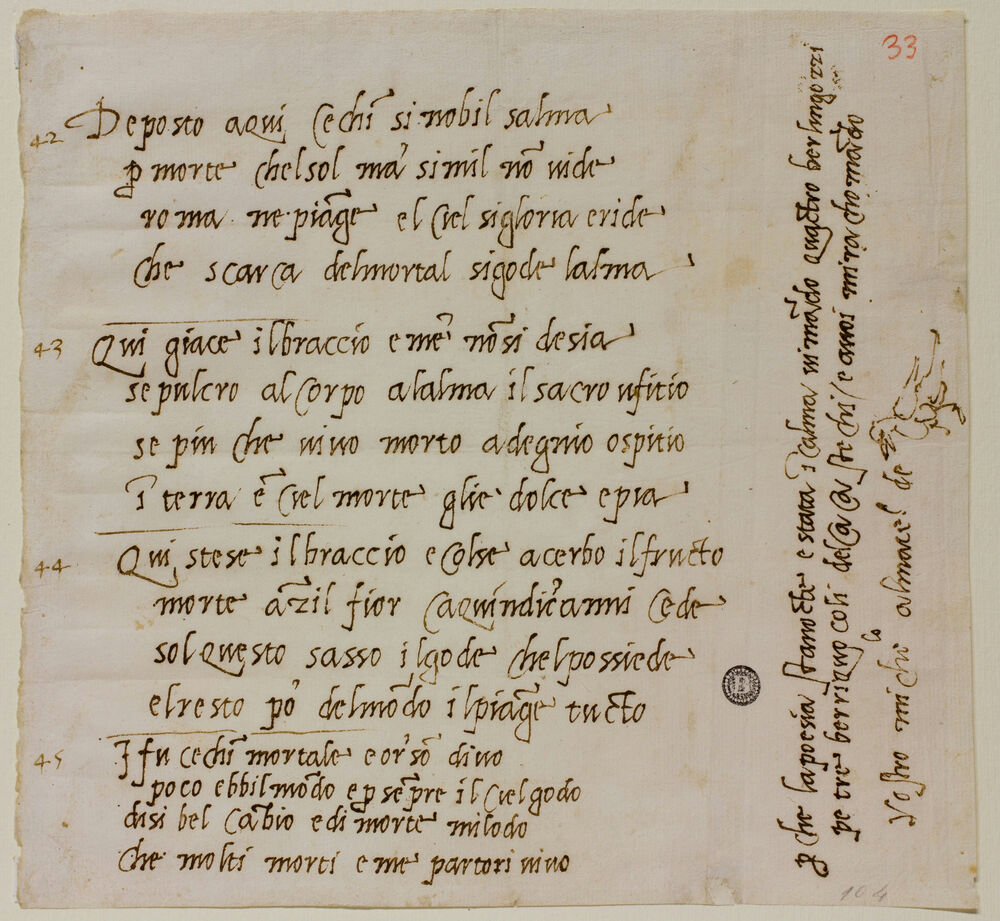 33
42 Deposto a qui Cechī si nobil salma
p̱ morte chel sol ma' simil nō uide
roma ne piāge el ciel si gloria e ride
che scarca del mortal si gode lalma
43 Qui giace il braccio e me' nō si desia
sepulcro al corpo a lalma il sacro ufitio
se piu che uiuo morto a degnio ospitio
ī terra e' ciel morte glie dolce e pia
44 Qui stese il braccio e colse acerbo il fructo
morte āzil fior ca quindic'anni cede
sol questo sasso il gode chel possiede
el resto po' del mōdo il piāge tucto
45 I fu cechī mortale e or sō diuo
poco ebbil mōdo e p̱ sēpre il ciel godo
di si bel cābio e di morte mi lodo
che molti morti e me partori uiuo
p̱ che la poesia stanocte e stata ī calma ui mādo quactro berlingozzi
pe tre berriquocoli del cacastechi e a uoi mi racomādo
Vostro michelo al macel de
104